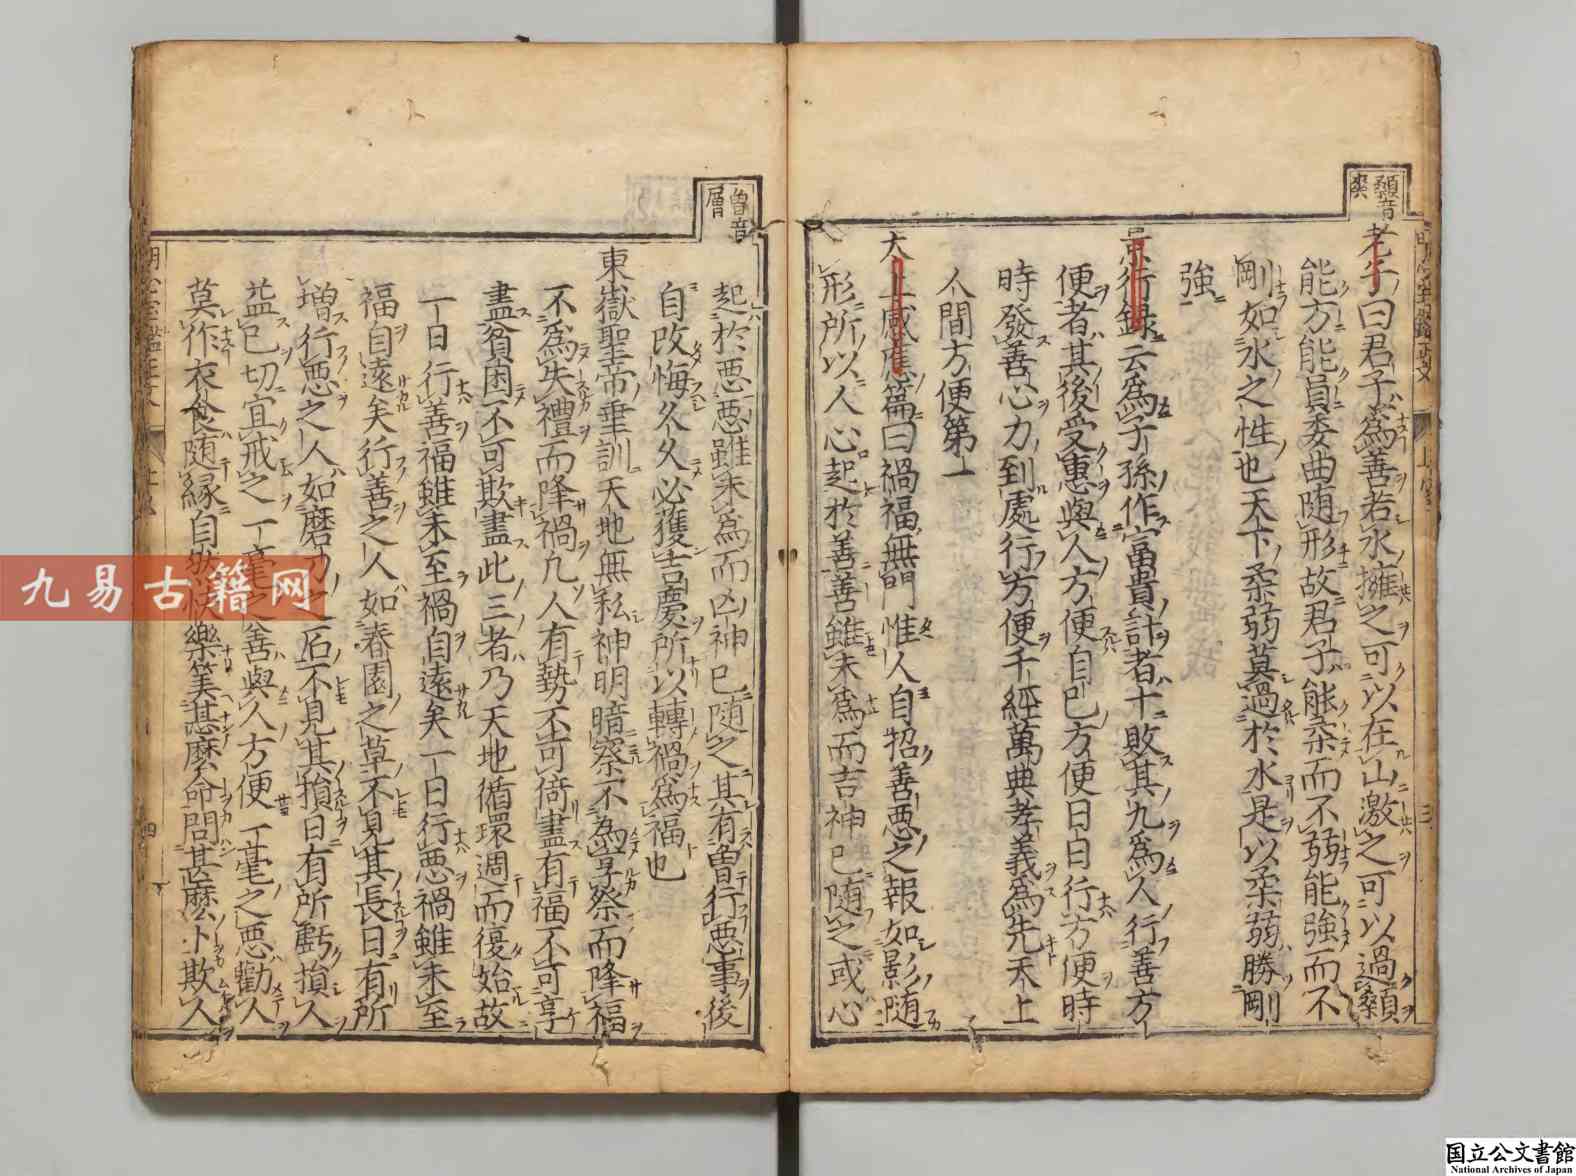 顙音
爽
老子曰君子為善若水擁之可以在山激之可以過顙
能方能員委曲随形故君子能柔而不弱能強而不
剛如水之性也天下柔弱莫過於水是以柔弱勝剛
強
景行録云為子孫作冨貴計者十敗其九為人行善方
便者其後受惠與人方便自己方便日日行方便時
時發善心力到處行方便千經萬典孝義為先天上
人間方便第一
太上感應篇曰禍福無門惟人自招善惡之報如影随
形所以人心起於善善雖未為而吉神已随之或心
曽音
層
起於惡惡雖未為而凶神已随之其有曽行惡事後
自改悔久久必獲吉慶所以轉禍為福也
東嶽聖帝垂訓天地無私神明暗察不為享祭而降福
不為失禮而降禍凢人有勢不可倚盡有福不可享
盡貧困不可欺盡此三者乃天地循環週而復始故
一日行善福雖未至禍自遠矣一日行惡禍雖未至
福自遠矣行善之人如春園之草不見其長日有所
増行惡之人如磨刀之石不見其損日有所虧損人
益己切宜戒之一毫之善與人方便一毫之惡勸人
莫作衣食随縁自然快樂筭甚麽命問甚麽卜欺人
四
九易古籍网
国立公文書館
National Archives of Japan